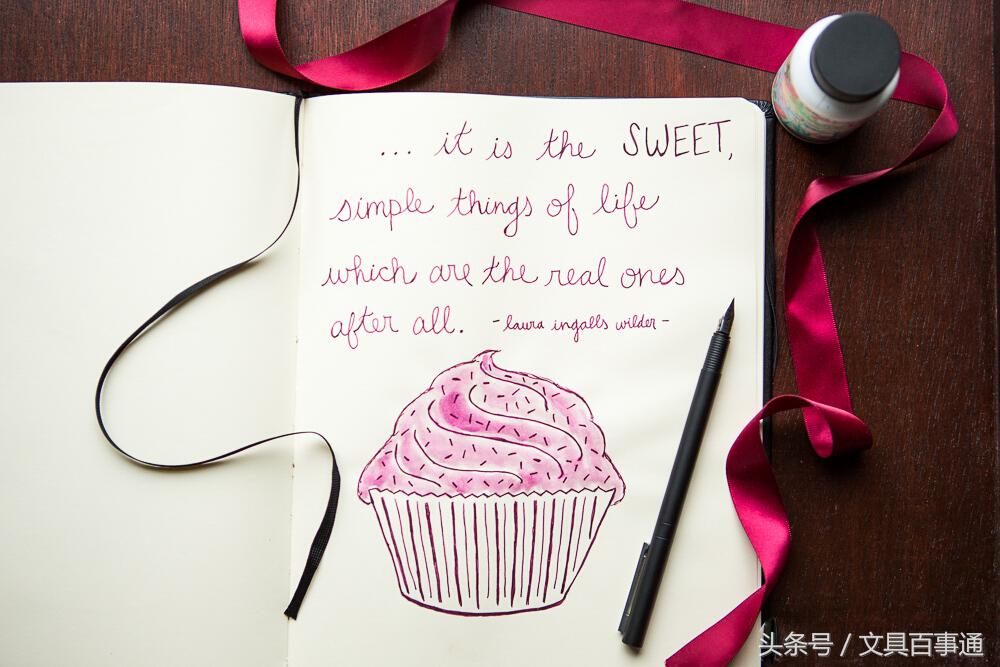 ... it is the SWEET,
simple things of life
which are the real ones
after all. -laura ingalls wilder-
头条号 / 文具百事通